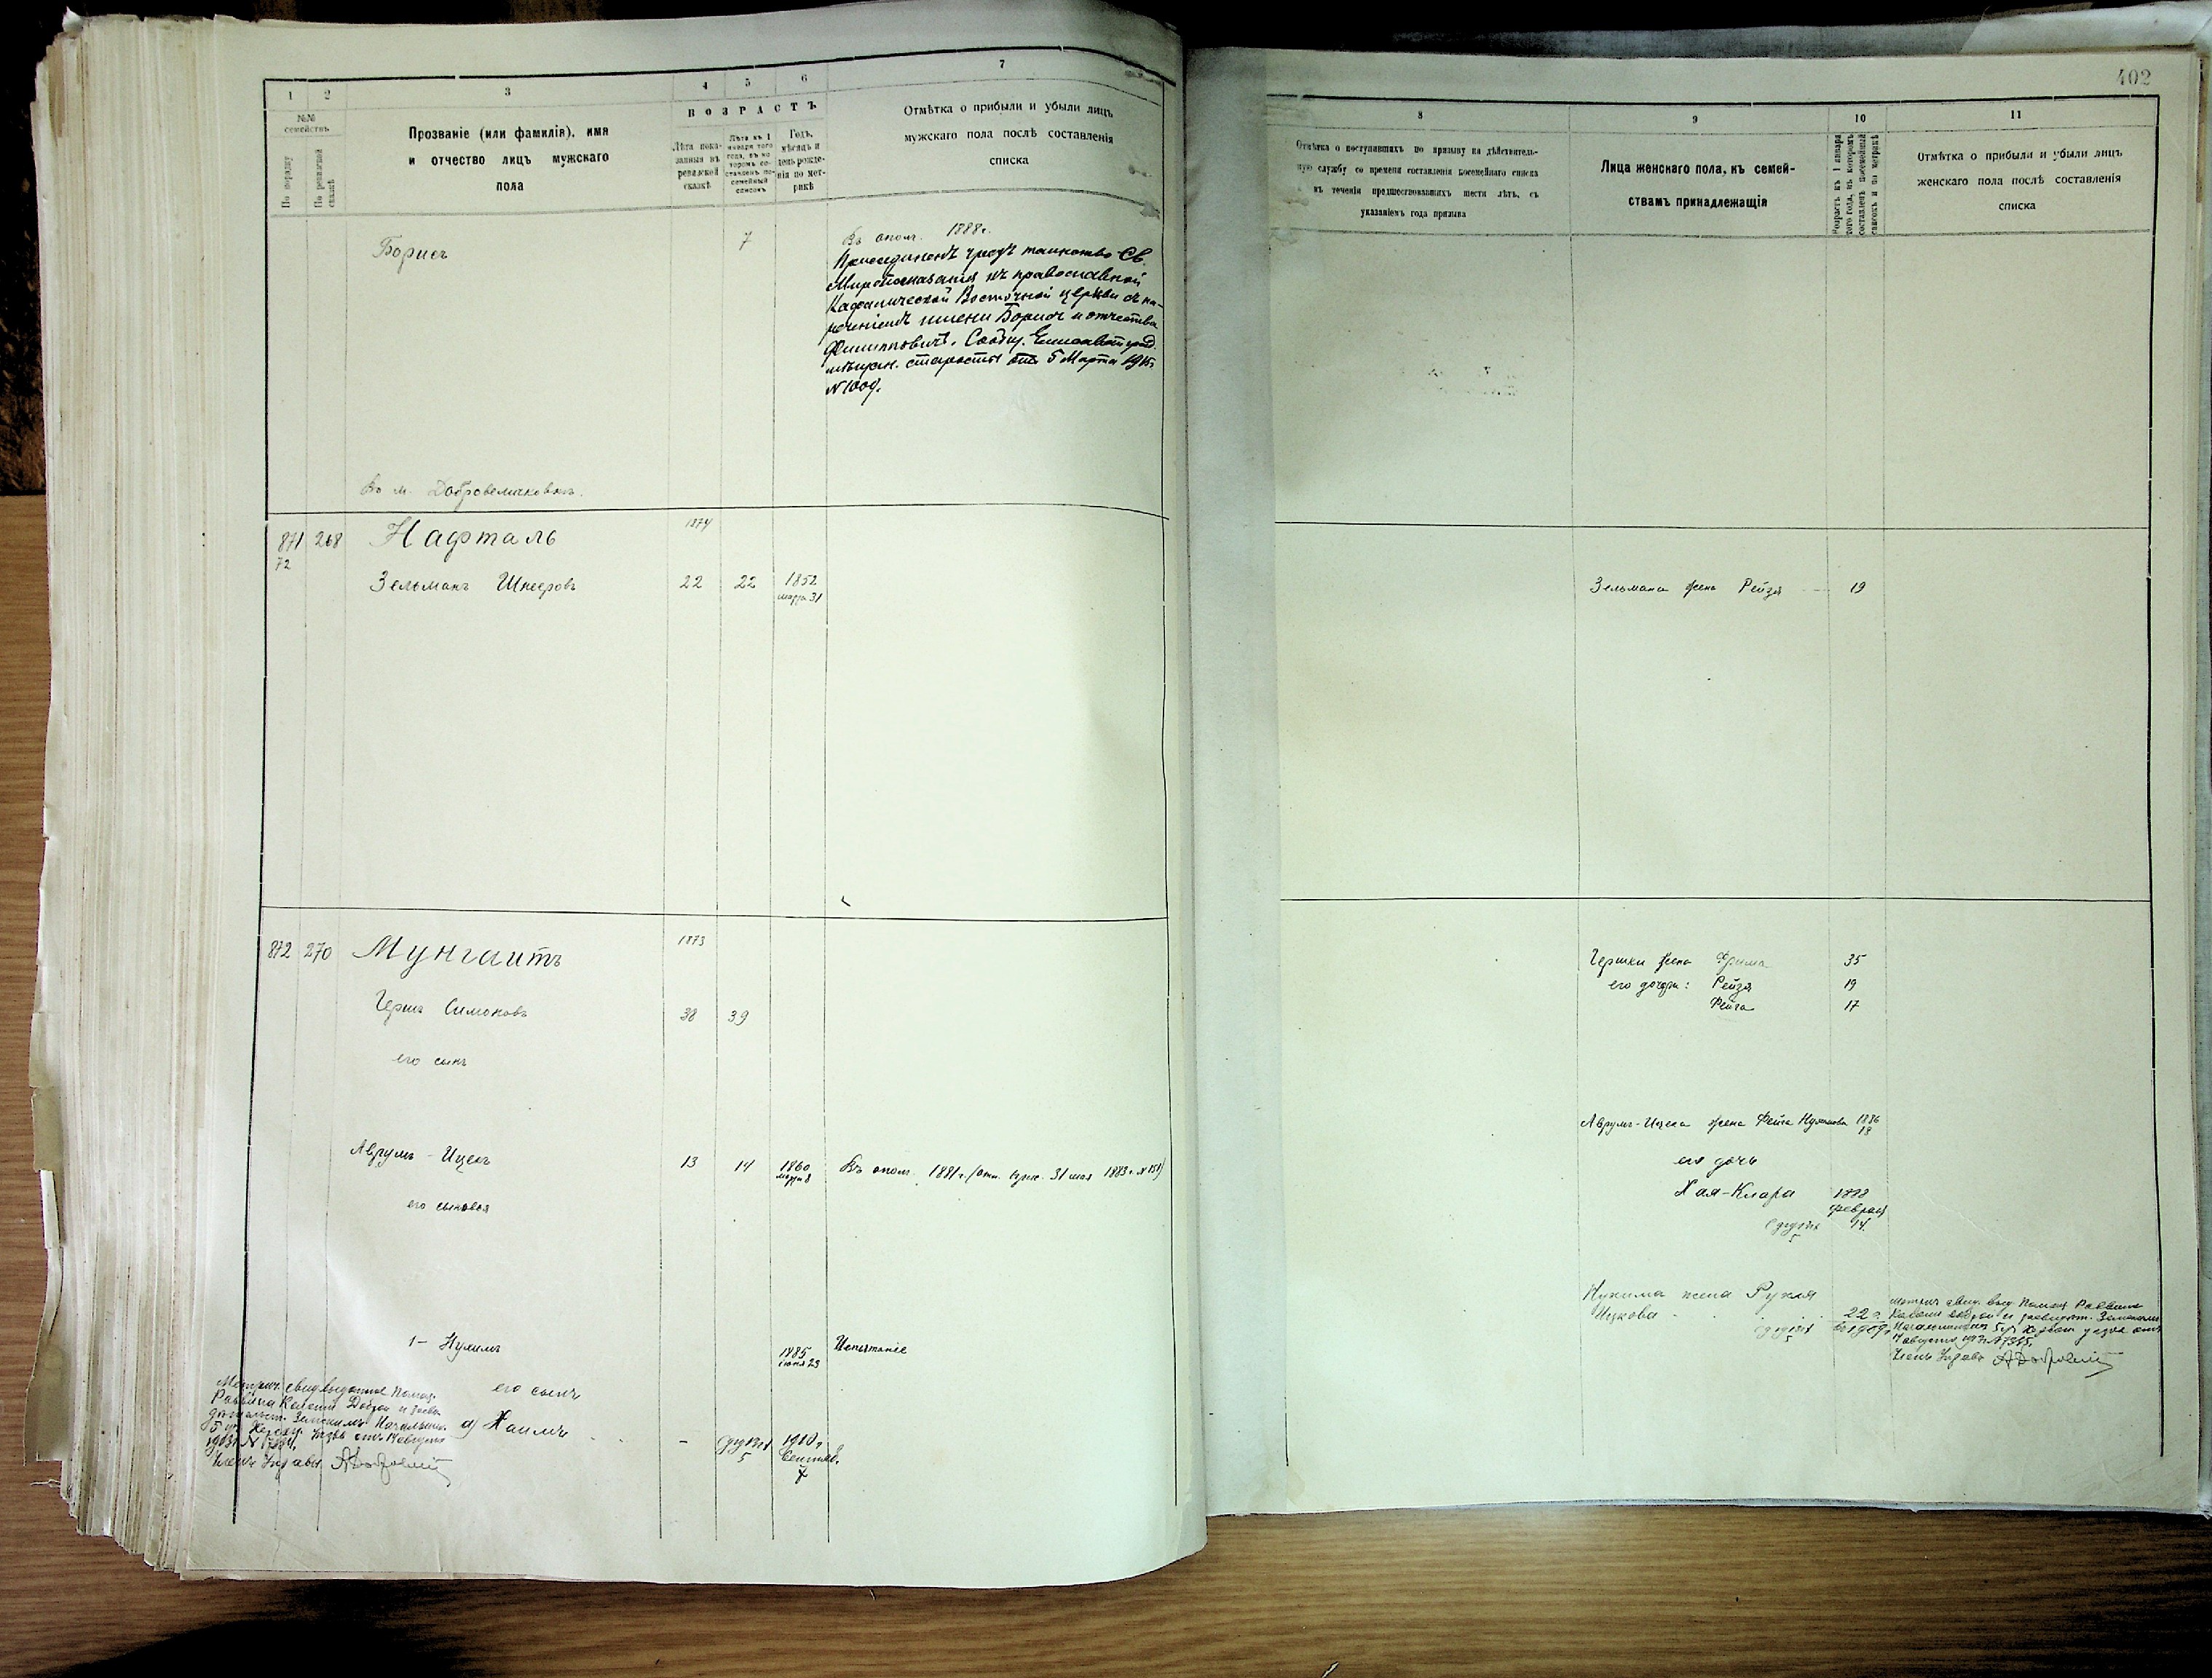 402
1
2
3
4
5
6
7
№№ семействъ
По порядку
По ревизской сказкѣ
Прозваніе (или фамилія), имя
и отчество лицъ мужскаго
пола
ВОЗРАСТЪ
Лѣта пока-
занныя въ
ревизской
сказкѣ
Лѣта къ 1
января того
года, въ ко-
торомъ со-
ставленъ по-
семейный
списокъ
Годъ,
мѣсяцъ и
день рожде-
нія по мет-
рикѣ
Отмѣтка о прибыли и убыли лицъ
мужскаго пола послѣ составленія
списка
Борисъ
7
Въ опол. 1888 г.
Присоединенъ чрезъ таинство Св.
Миропомазанія къ православной
Каѳолической Восточной церкви съ на-
реченіемъ имени Борисъ и отчества
Филипповичъ. Сообщ. Елисаветград.
мѣщан. старосты отъ 5 Марта 1915 г.
№ 1009.
Въ м. Добровеличковкѣ.
871 268 Нафталь 1874
72
Зельманъ Шнееровъ 22 22 1852
марта 31
872 270 Мунгаитъ 1873
Гершъ Симоновъ 38 39
его сынъ
Аврумъ-Ицекъ 13 14 1860
марта 8
Въ опол. 1881 г. 31 мая 1883 г. № 151)
его сыновья
1 – Нухимъ 1885
іюня 23
Испытаніе
его сынъ
а) Хаимъ – 5 1910 г.
Сентяб.
7
Метрич. свид. выданное Помощ.
Раввина
Земскимъ Начальник.
5 уч. отъ 14 августа
Членъ Управы
8
9
10
11
Отмѣтка о поступившихъ по призыву на дѣйствитель-
ную службу со времени составленія посемейнаго списка
въ теченіи предшествовавшихъ шести лѣтъ, съ
указаніемъ года призыва
Лица женскаго пола, къ семей-
ствамъ принадлежащія
Возрастъ къ 1 января
того года, въ которомъ
составленъ посемейный
списокъ и по метрикѣ
Отмѣтка о прибыли и убыли лицъ
женскаго пола послѣ составленія
списка
Зельмана жена Рейзя 19
Гершки жена Фрима 35
его дочери: Рейзя 19
Фейга 17
Аврумъ-Ицека жена Фейга 1886
его дочь
Хая-Клара
февраля
14
Нухима жена Рухля
Ицкова 22 г.
въ 1909 г.
Метрич. свид. выд. Помощ. Раввина
Земскимъ
Начальникомъ 5 уч.
Членъ Управы